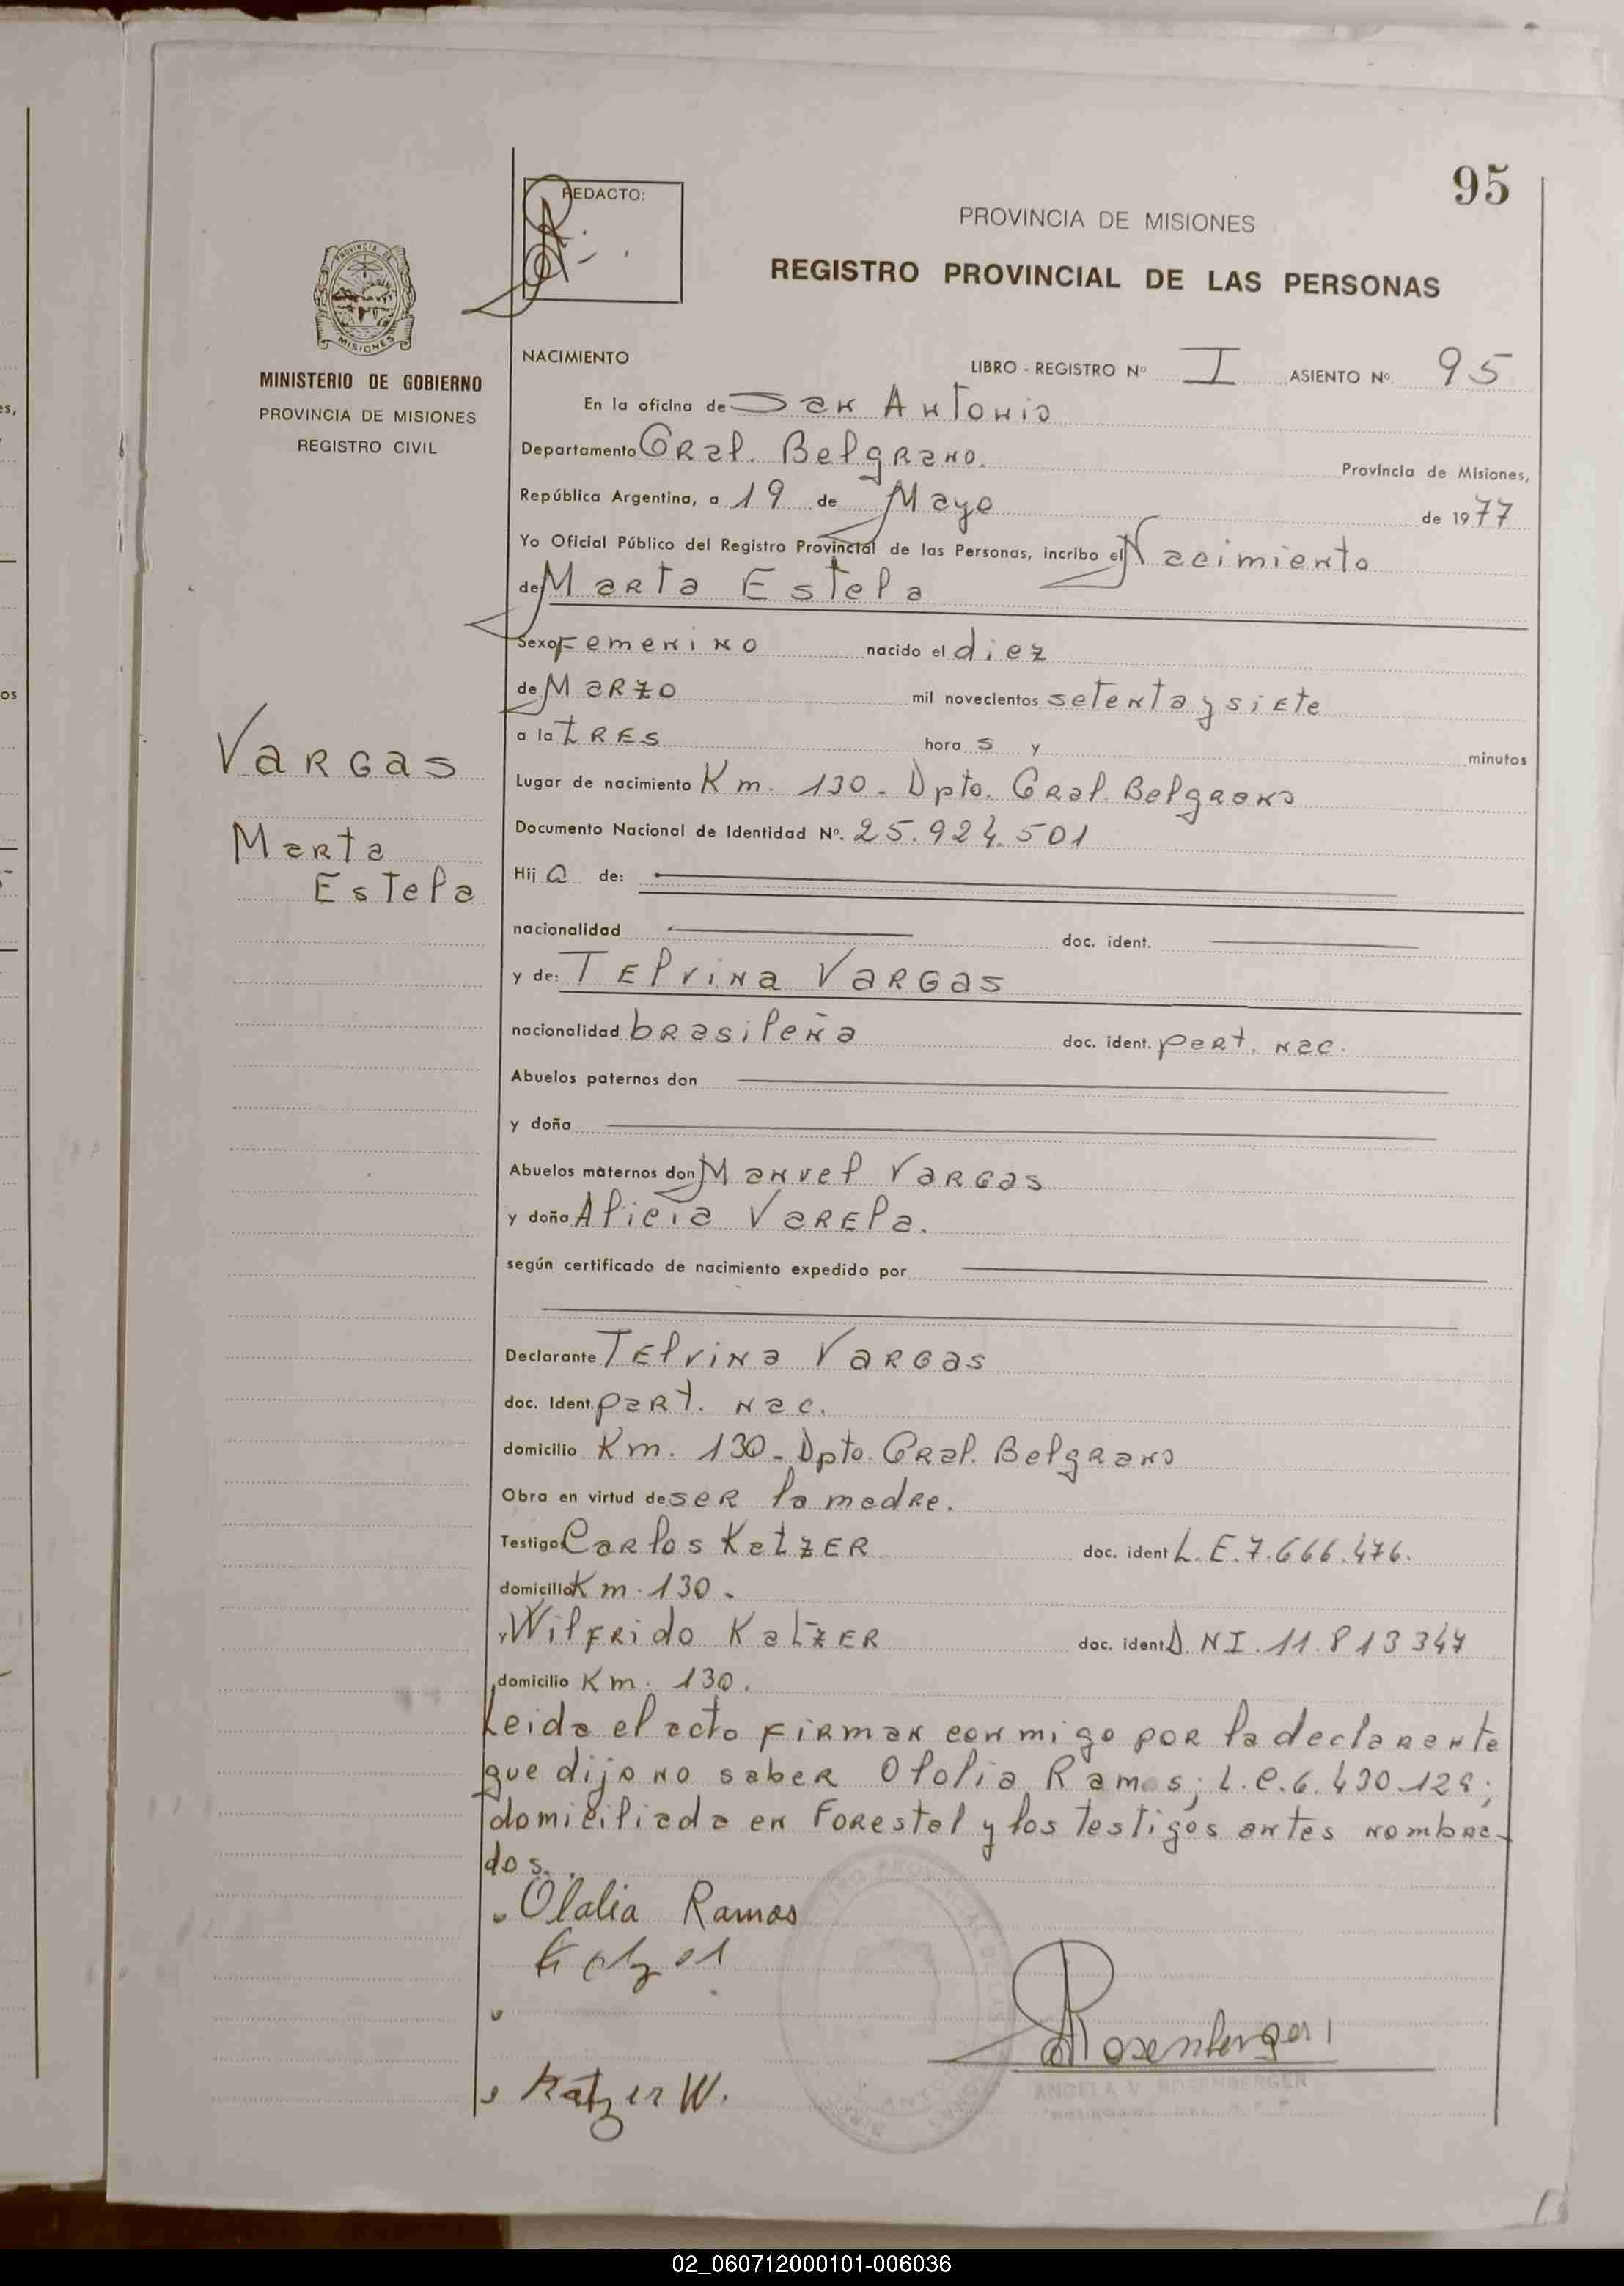 95
REDACTO:
PROVINCIA DE MISIONES
REGISTRO PROVINCIAL DE LAS PERSONAS
PROVINCIA DE
MISIONES
MINISTERIO DE GOBIERNO
PROVINCIA DE MISIONES
REGISTRO CIVIL
NACIMIENTO LIBRO - REGISTRO Nº I ASIENTO Nº 95
En la oficina de San Antonio
Departamento Gral. Belgrano. Provincia de Misiones,
República Argentina, a 19 de Mayo de 1977
Yo Oficial Público del Registro Provincial de las Personas, incribo el Nacimiento
de Marta Estela
Sexo Femenino nacido el diez
de Marzo mil novecientos setenta y siete
a la tres hora s y minutos
Vargas
Lugar de nacimiento Km. 130 - Dpto. Gral. Belgrano
Documento Nacional de Identidad Nº. 25.924.501
Marta
Estela
Hij a de:
nacionalidad doc. ident.
y de: Telvina Vargas
nacionalidad brasileña doc. ident. part. nac.
Abuelos paternos don
y doña
Abuelos maternos don Manuel Vargas
y doña Alicia Varela.
según certificado de nacimiento expedido por
Declarante Telvina Vargas
doc. Ident. part. nac.
domicilio Km. 130 - Dpto. Gral. Belgrano
Obra en virtud de ser la madre.
Testigos Carlos Katzer doc. ident L.E. 7.666.476.
domicilio Km. 130.
y Wilfrido Katzer doc. ident D.NI. 11.813347
domicilio Km. 130.
Leida el acto firman conmigo por la declarante
que dijo no saber Ololia Ramos; L.C. 6.430.129;
domiciliada en Forestal y los testigos antes nombra-
dos.
Olalia Ramos
Katzer W.
Rosenberger
ANGELA V. ROSENBERGER
02_060712000101-006036